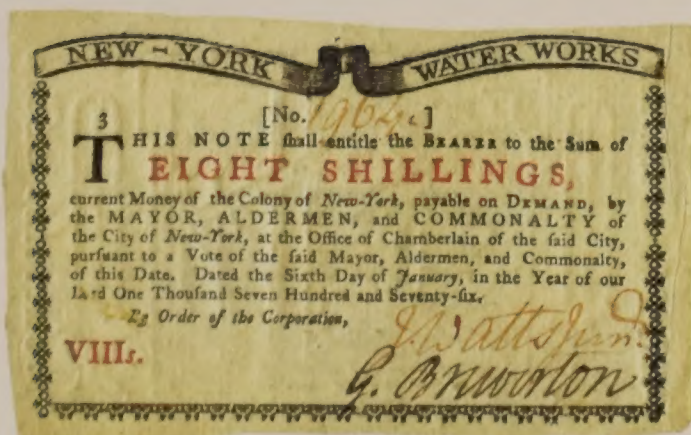 NEW-YORK WATER WORKS
3 [No. 1964.]
THIS NOTE ſhall entitle the BEARER to the Sum of
EIGHT SHILLINGS,
current Money of the Colony of New-York, payable on DEMAND, by
the MAYOR, ALDERMEN, and COMMONALTY of
the City of New-York, at the Office of Chamberlain of the ſaid City,
purſuant to a Vote of the ſaid Mayor, Aldermen, and Commonalty,
of this Date. Dated the Sixth Day of January, in the Year of our
Lord One Thouſand Seven Hundred and Seventy-ſix,
By Order of the Corporation,
J. Watts Junr.
VIIIs.
G. Brewerton